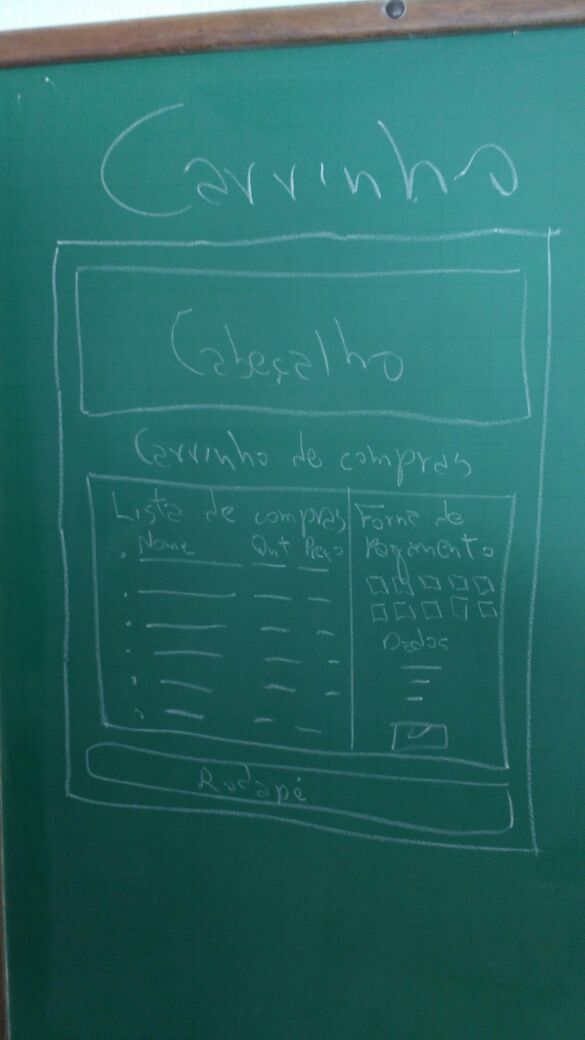 Carrinho
Cabeçalho
Carrinho de compras
Lista de compras
Nome Qnt Preço
Forma de
Pagamento
Dados
Rodapé